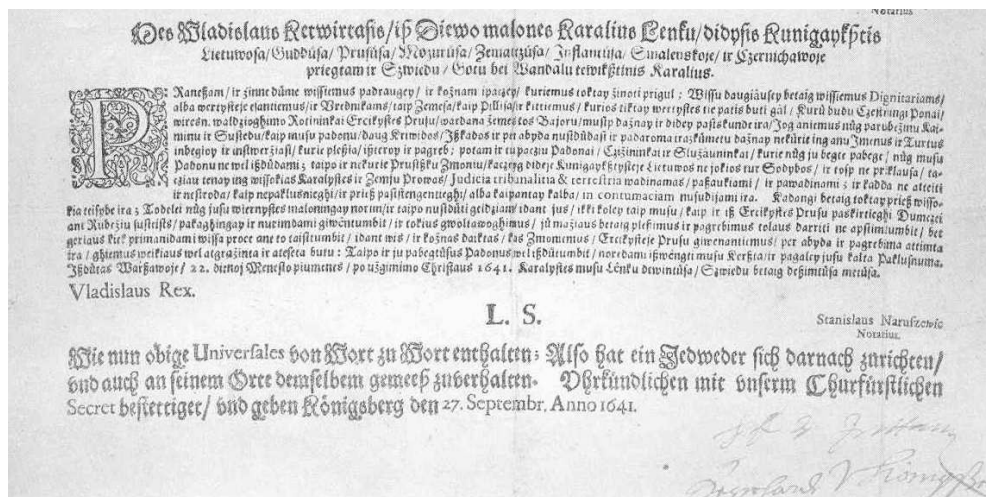 Notarius
Mes Wladislaus Ketwirtasis/iß Diewo malones Karalius Lenku/didysis Kunigaykßtis
Lietuwosa/Guddûsa/Prusûsa/Mozurûsa/Zemaitzûsa/Inflantûsa/Smalenskoje/ir Czernichawoje
priegtam ir Szwiedu/Gotu bei Wandalu tewikßtinis Karalius.
PRaneßam/ir zinne dûme wissiemus padraugey/ir koznam ipaczey/kuriemus toktay žinoti prigul: Wissu daugiáusey betaig wissiemus Dignitariams/
alba wertystēje esantiemus/ir Vrednikams/taip Zemesa/kaip Pillisa/ir kittiemus/kurios tiktay wertystes tie patis buti gal/Kurû budu Czestingi Ponai/
wiresn. waldzioghimo Rotininkai Ercikystes Prusu/wardana žemestos Bajoru/musip dažnay ir didey pasiskunde ira/Jog aniemus nûg parubežiniu Kai-
minu ir Susiedu/kaip musu padonu/daug Kriwidos/Ißkados ir per abyda nusidûdast ir padaroma irazkûmetu dažnay nekurie ing anu Imenus ir Turtus
inbegioy ir answerziast/kurie pleßia/ißterioy ir pagreb; potam ir tu paczu Padonai/Czižininkai ir Služauninkai/kurie nûg ju begte pabege/nûg musu
Padonu ne wel ißdûdami; taipo ir nekurie Prusißku Zmoniu/kaczeg dideje Kunigaykßtysteje Lietuwos ne jokios tur Sodybos/ir tosp ne priklausa/ta-
cziau tenay ing wissokias Karalystes ir Zemju Prowas/Judicia tribunalitia & terrestria wadinamas/paßaukiami/ir pawadinami; ir kadda ne alteiti
ir nestroda/kaip nepaklusnieghi/ir prieß pasistengentieghi/alba kaipantay kalba/in contumaciam nusudijami ira. Kadangi betaig toktay prieß wisso-
kia teisybe ira; Todelei nûg jusu wiernystes maloningay norim/ir taipo nusidûti geidziam/idant jus/ikki koley taip musu/kaip ir iß Ercikystes Prusu paskirtieghi Dumczei
ant Rubežiu susieisis/pakaghingay ir nurimdami giwêntumbit/ir tokius gwoltawoghimus/jû mažiaus betaig plesimus ir pagrebimus tolaus darriti ne apsiimtumbit/bet
geriaus kiek primanidami wissa proce ane to taisitumbit/idant wis/ir kožnas daiktas/kas Zmonemus/Ercikysteje Prusu giwenantiemus/per abyda ir pagrebima attimta
ira/ghiemus weikiaus wel atgrazinta ir ateseta butu: Taipo ir ju pabegtusus Padonus wel ißdûtumbit/noredami ißwengti musu Kerßta/ir pagaley jusu kalta Paklusnuma.
Ißdûtas Warßawoje/22. dienoj Menesio piumenes/po užgimimo Christaus 1641. Karalystes musu Lênku dewintûsa/Szwiedu betaig deßimtûsa metûsa.
Vladislaus Rex.
L. S.
Stanislaus Naruszewic
Notarius.
Wie nun obige Universales von Wort zu Wort enthalten; Also hat ein Jedweder sich darnach zurichten/
vnd auch an seinem Orte demselbem gemeeß zuverhalten. Vhrkündlichen mit vnserm Churfürstlichen
Secret bestettiget/ vnd geben Königsberg den 27. Septembr. Anno 1641.